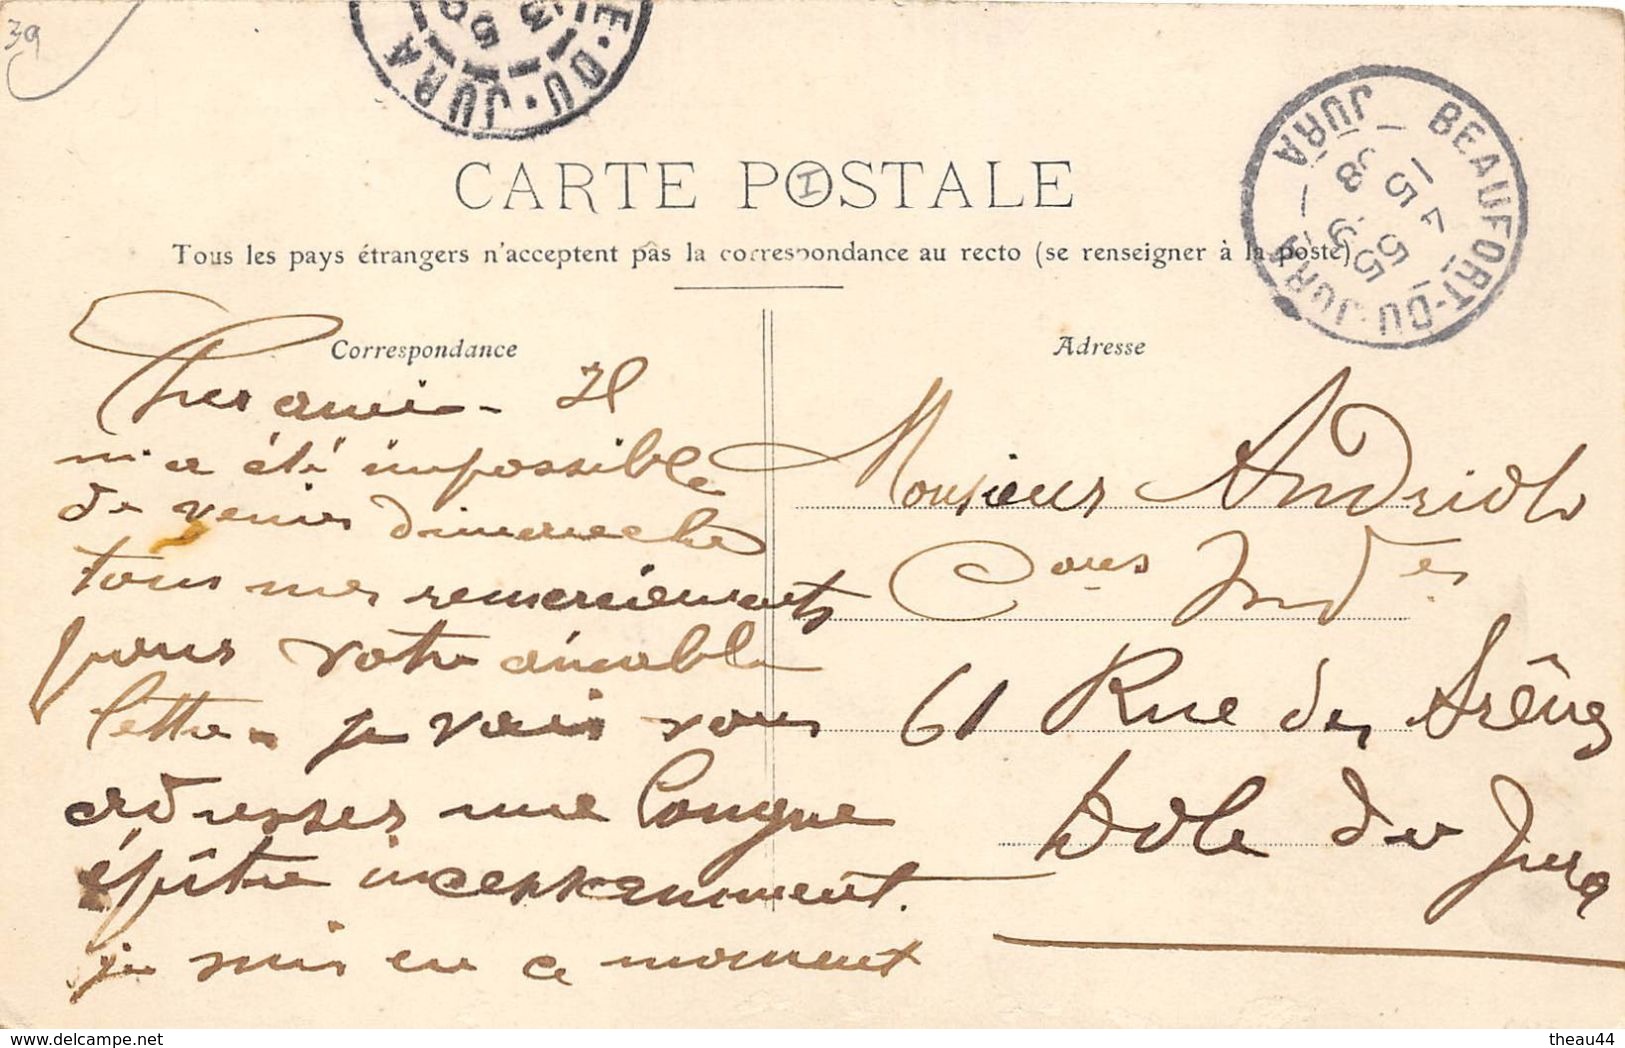 39
E·DU·JURA
CARTE POSTALE
I
Tous les pays étrangers n'acceptent pas la correspondance au recto (se renseigner à la poste)
BEAUFORT-DU-JURA
JURA
Correspondance
Cher ami - Il
m'a été impossible
de venir dimanche
tous mes remerciements
pour votre aimable
lettre - je vais vous
adresser une longue
épître incessamment.
je suis en ce moment
Adresse
Monsieur
61 Rue des Arènes
Dole du Jura
delcampe.net
theau44